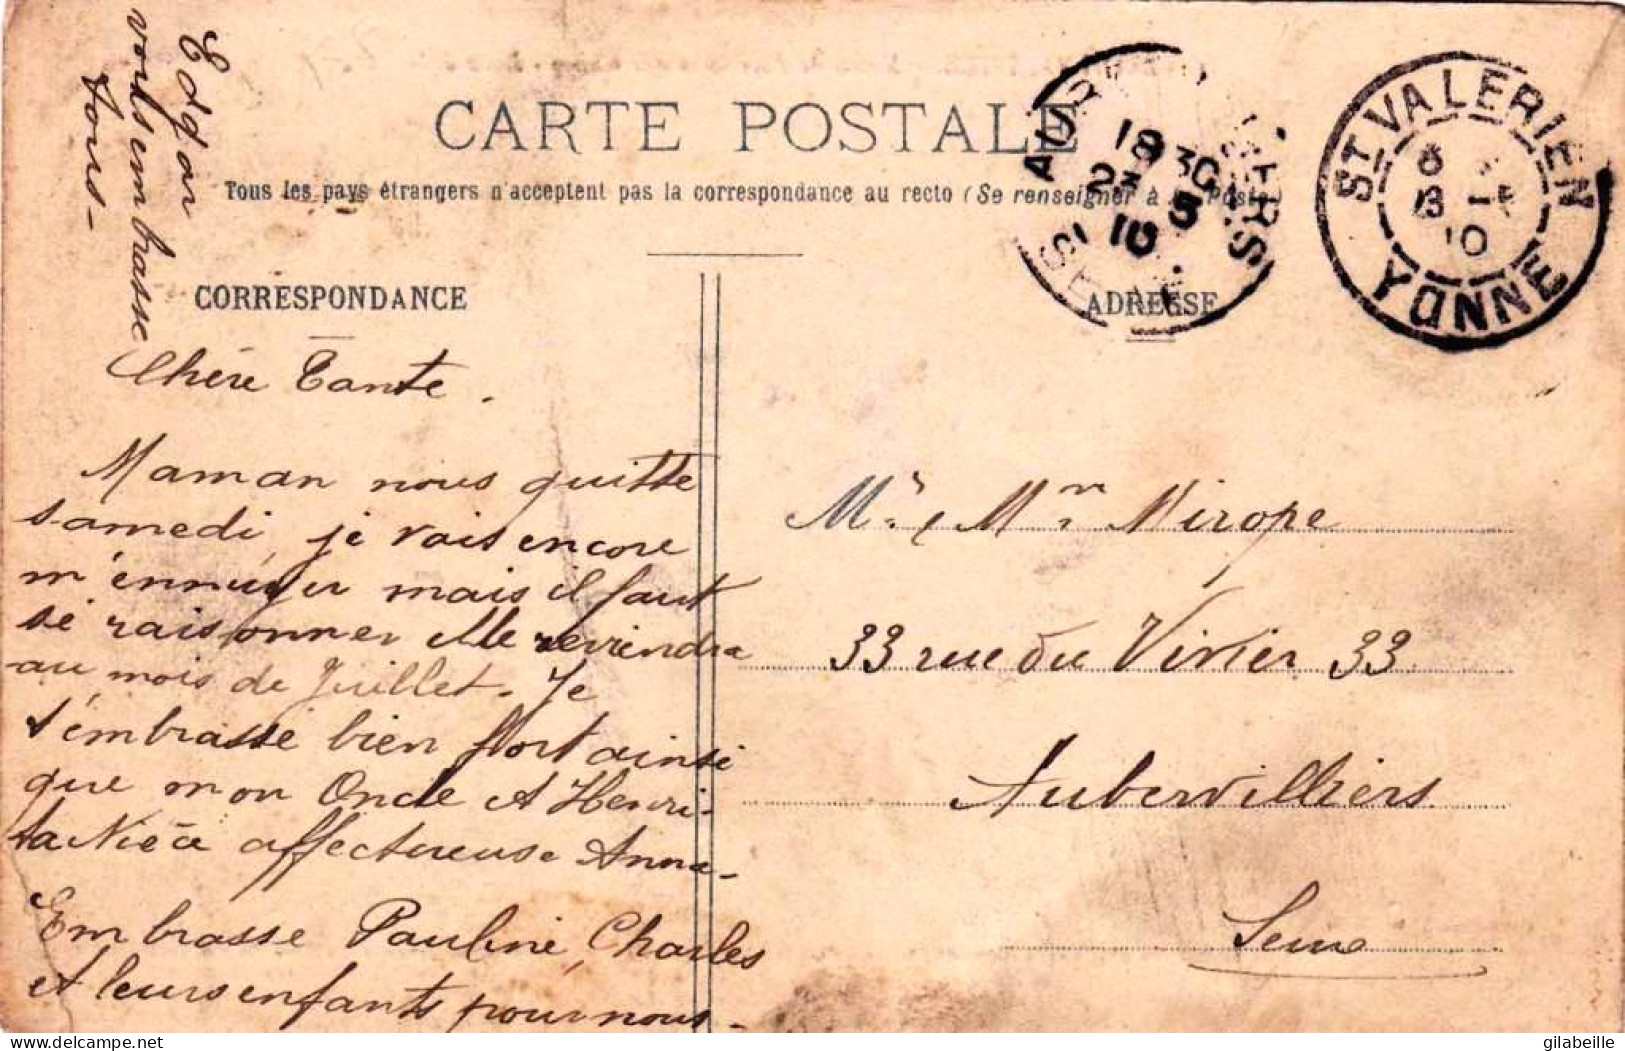 Edgar
vous embrasse
tous -
CARTE POSTALE
Tous les pays étrangers n'acceptent pas la correspondance au recto (Se renseigner à la Poste)
CORRESPONDANCE
ADRESSE
18 30
23 5
10
ST VALERIEN
10
YONNE
Chère Tante.
Maman nous quitte
samedi, je vais encore
m'ennuyer mais il faut
sé raisonner elle reviendra
au mois de Juillet. Je
t'embrasse bien fort ainsi
que mon Oncle et Henri.
ta Nièce affectueuse Anna.
Embrasse Pauline, Charles
et leurs enfants pour nous.
Mr & Mme Mirope
33 rue du Vivier 33
Aubervilliers
Seine
www.delcampe.net
gilabeille